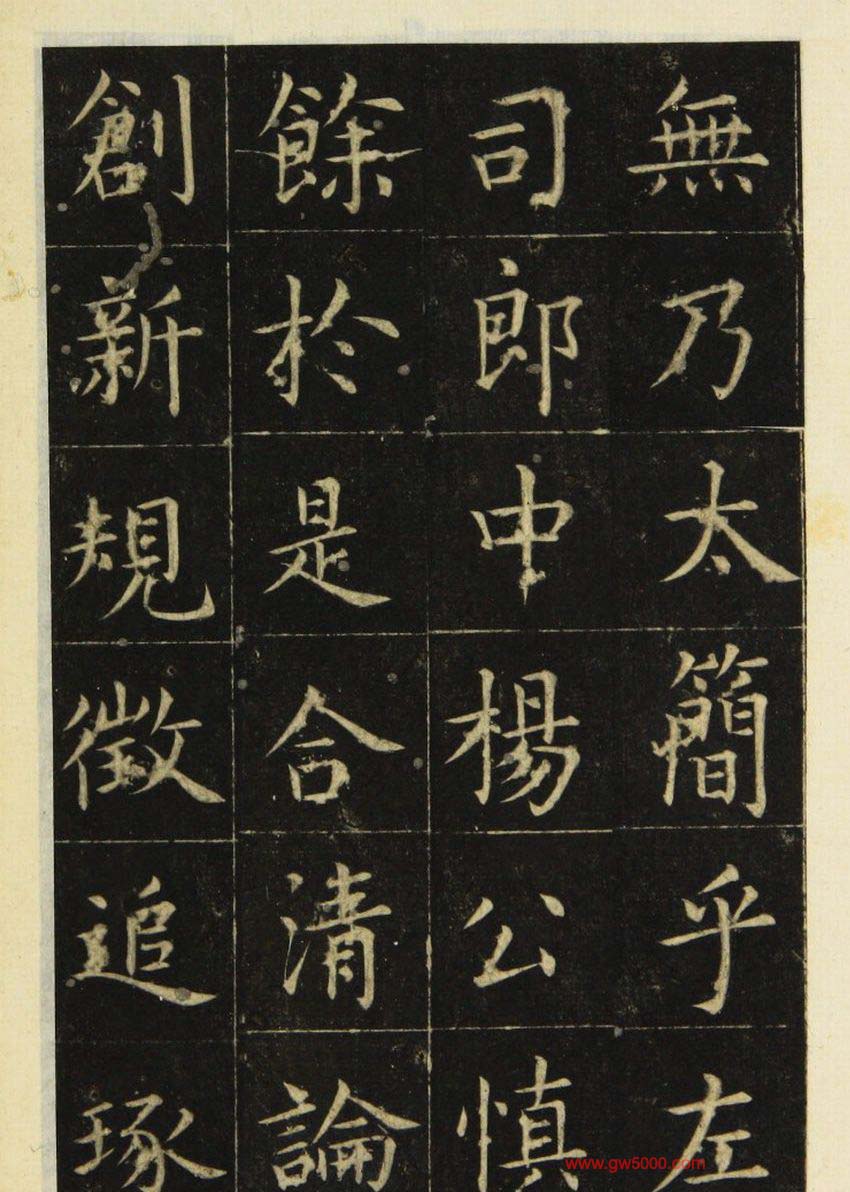 無乃太簡乎左
司郎中楊公慎
餘於是合清論
創新規徵追琢
www.gw5000.com